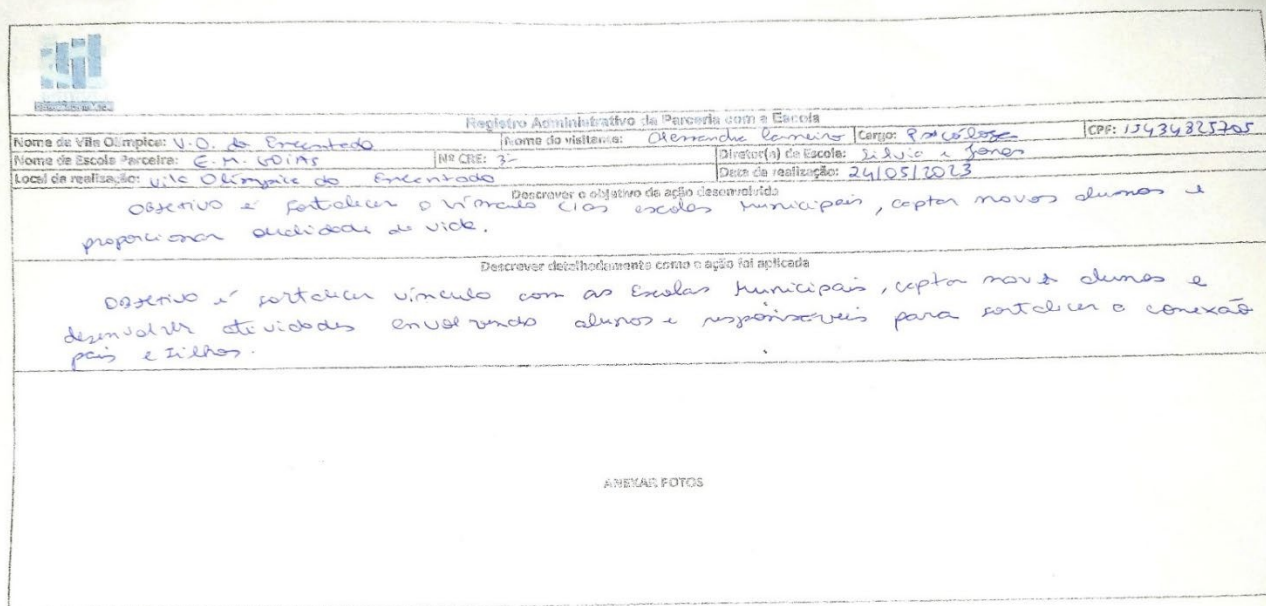 Registro Administrativo da Parceria com a Escola
Nome da Vila Olímpica: V.O. do Encantado Nome do visitante: Alessandra Carneiro Cargo: Psicóloga CPF: 15434825705
Nome da Escola Parceira: E.M. GOIÁS Nº CRE: 3ª Diretor(a) da Escola: Silvia e Jones
Local da realização: Vila Olímpica do Encantado Data da realização: 24/05/2023
Descrever o objetivo da ação desenvolvida
OBJETIVO é fortalecer o vínculo c/as escolas municipais, captar novos alunos e
proporcionar qualidade de vida.
Descrever detalhadamente como a ação foi aplicada
OBJETIVO é fortalecer vínculo com as Escolas Municipais, captar novos alunos e
desenvolver atividades envolvendo alunos e responsáveis para fortalecer a conexão
pais e filhos.
ANEXAR FOTOS